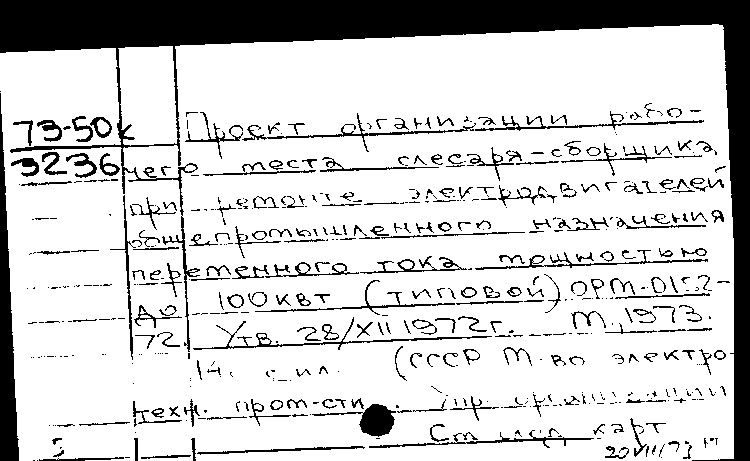 73-50к Проект организации рабо-
3236 чего места слесаря-сборщика
при ремонте электродвигателей
общепромышленного назначения
переменного тока мощностью
до 100 квт (типовой) ОРМ-0152-
72. Утв. 28/XII 1972г. М., 1973.
14. с ил. (СССР М-во электро-
техн. пром-сти. Упр. организации
См след карт
20 VII/73